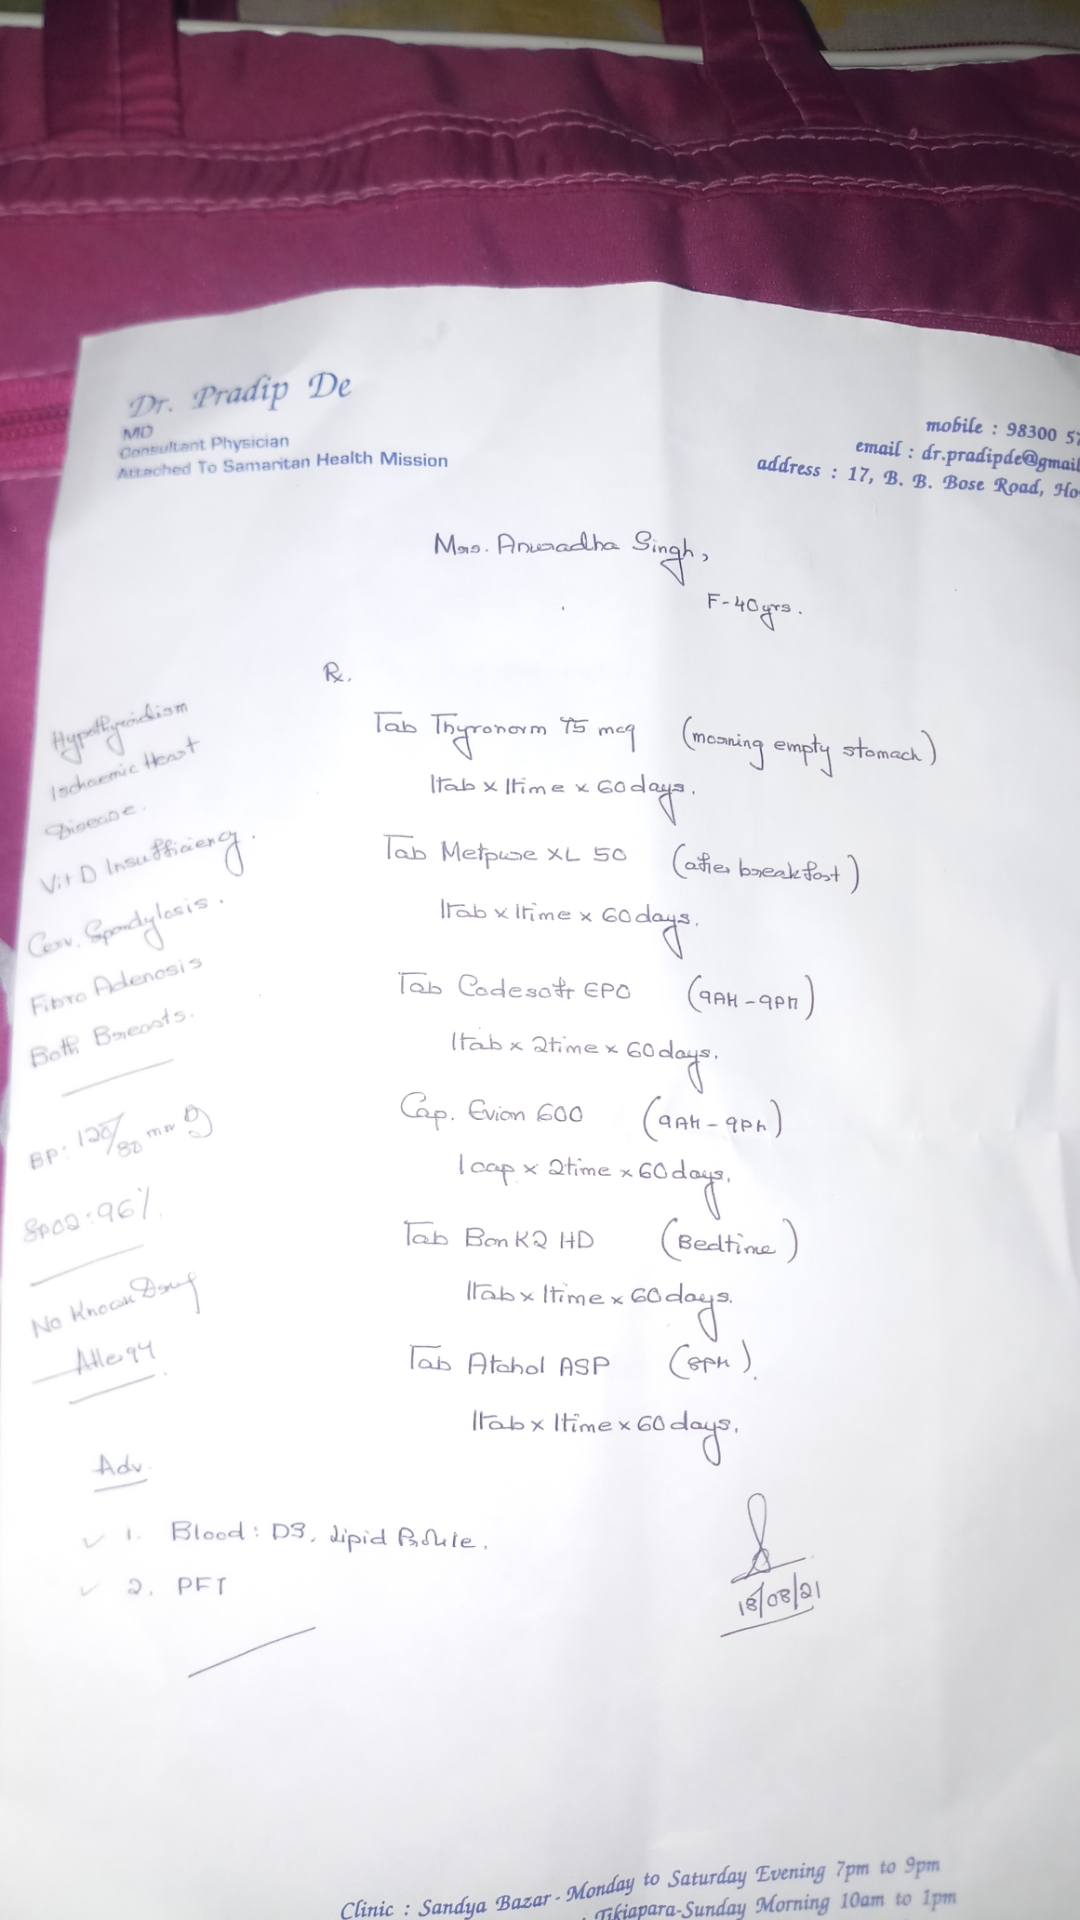 Dr. Pradip De
MD
Consultant Physician
Attached To Samaritan Health Mission
mobile : 98300 57
email : dr.pradipde@gmail
address : 17, B. B. Bose Road, Ho
Mrs. Anuradha Singh,
F-40yrs.
Rx.
Hypothyroidism
Ischaemic Heart
Disease.
Vit D Insufficiency.
Cerv. Spondylosis.
Fibro Adenosis
Both Breasts.
BP: 120/80 mm
SPO2:96%
No Known Drug
Allergy
Tab Thyronorm 75 mcg (morning empty stomach)
1tab x 1time x 60days.
Tab Metpure XL 50 (after breakfast)
1tab x 1time x 60days.
Tab Codesoft EPO (9AM-9PM)
1tab x 2time x 60days.
Cap. Evion 600 (9AM-9PM)
1cap x 2time x 60days.
Tab Bon K2 HD (Bedtime)
1tab x 1time x 60days.
Tab Atchol ASP (8PM).
1tab x 1time x 60days.
Adv.
1. Blood: D3, Lipid Profile.
2. PFT
18/08/21
Clinic : Sandya Bazar - Monday to Saturday Evening 7pm to 9pm
Tikiapara-Sunday Morning 10am to 1pm